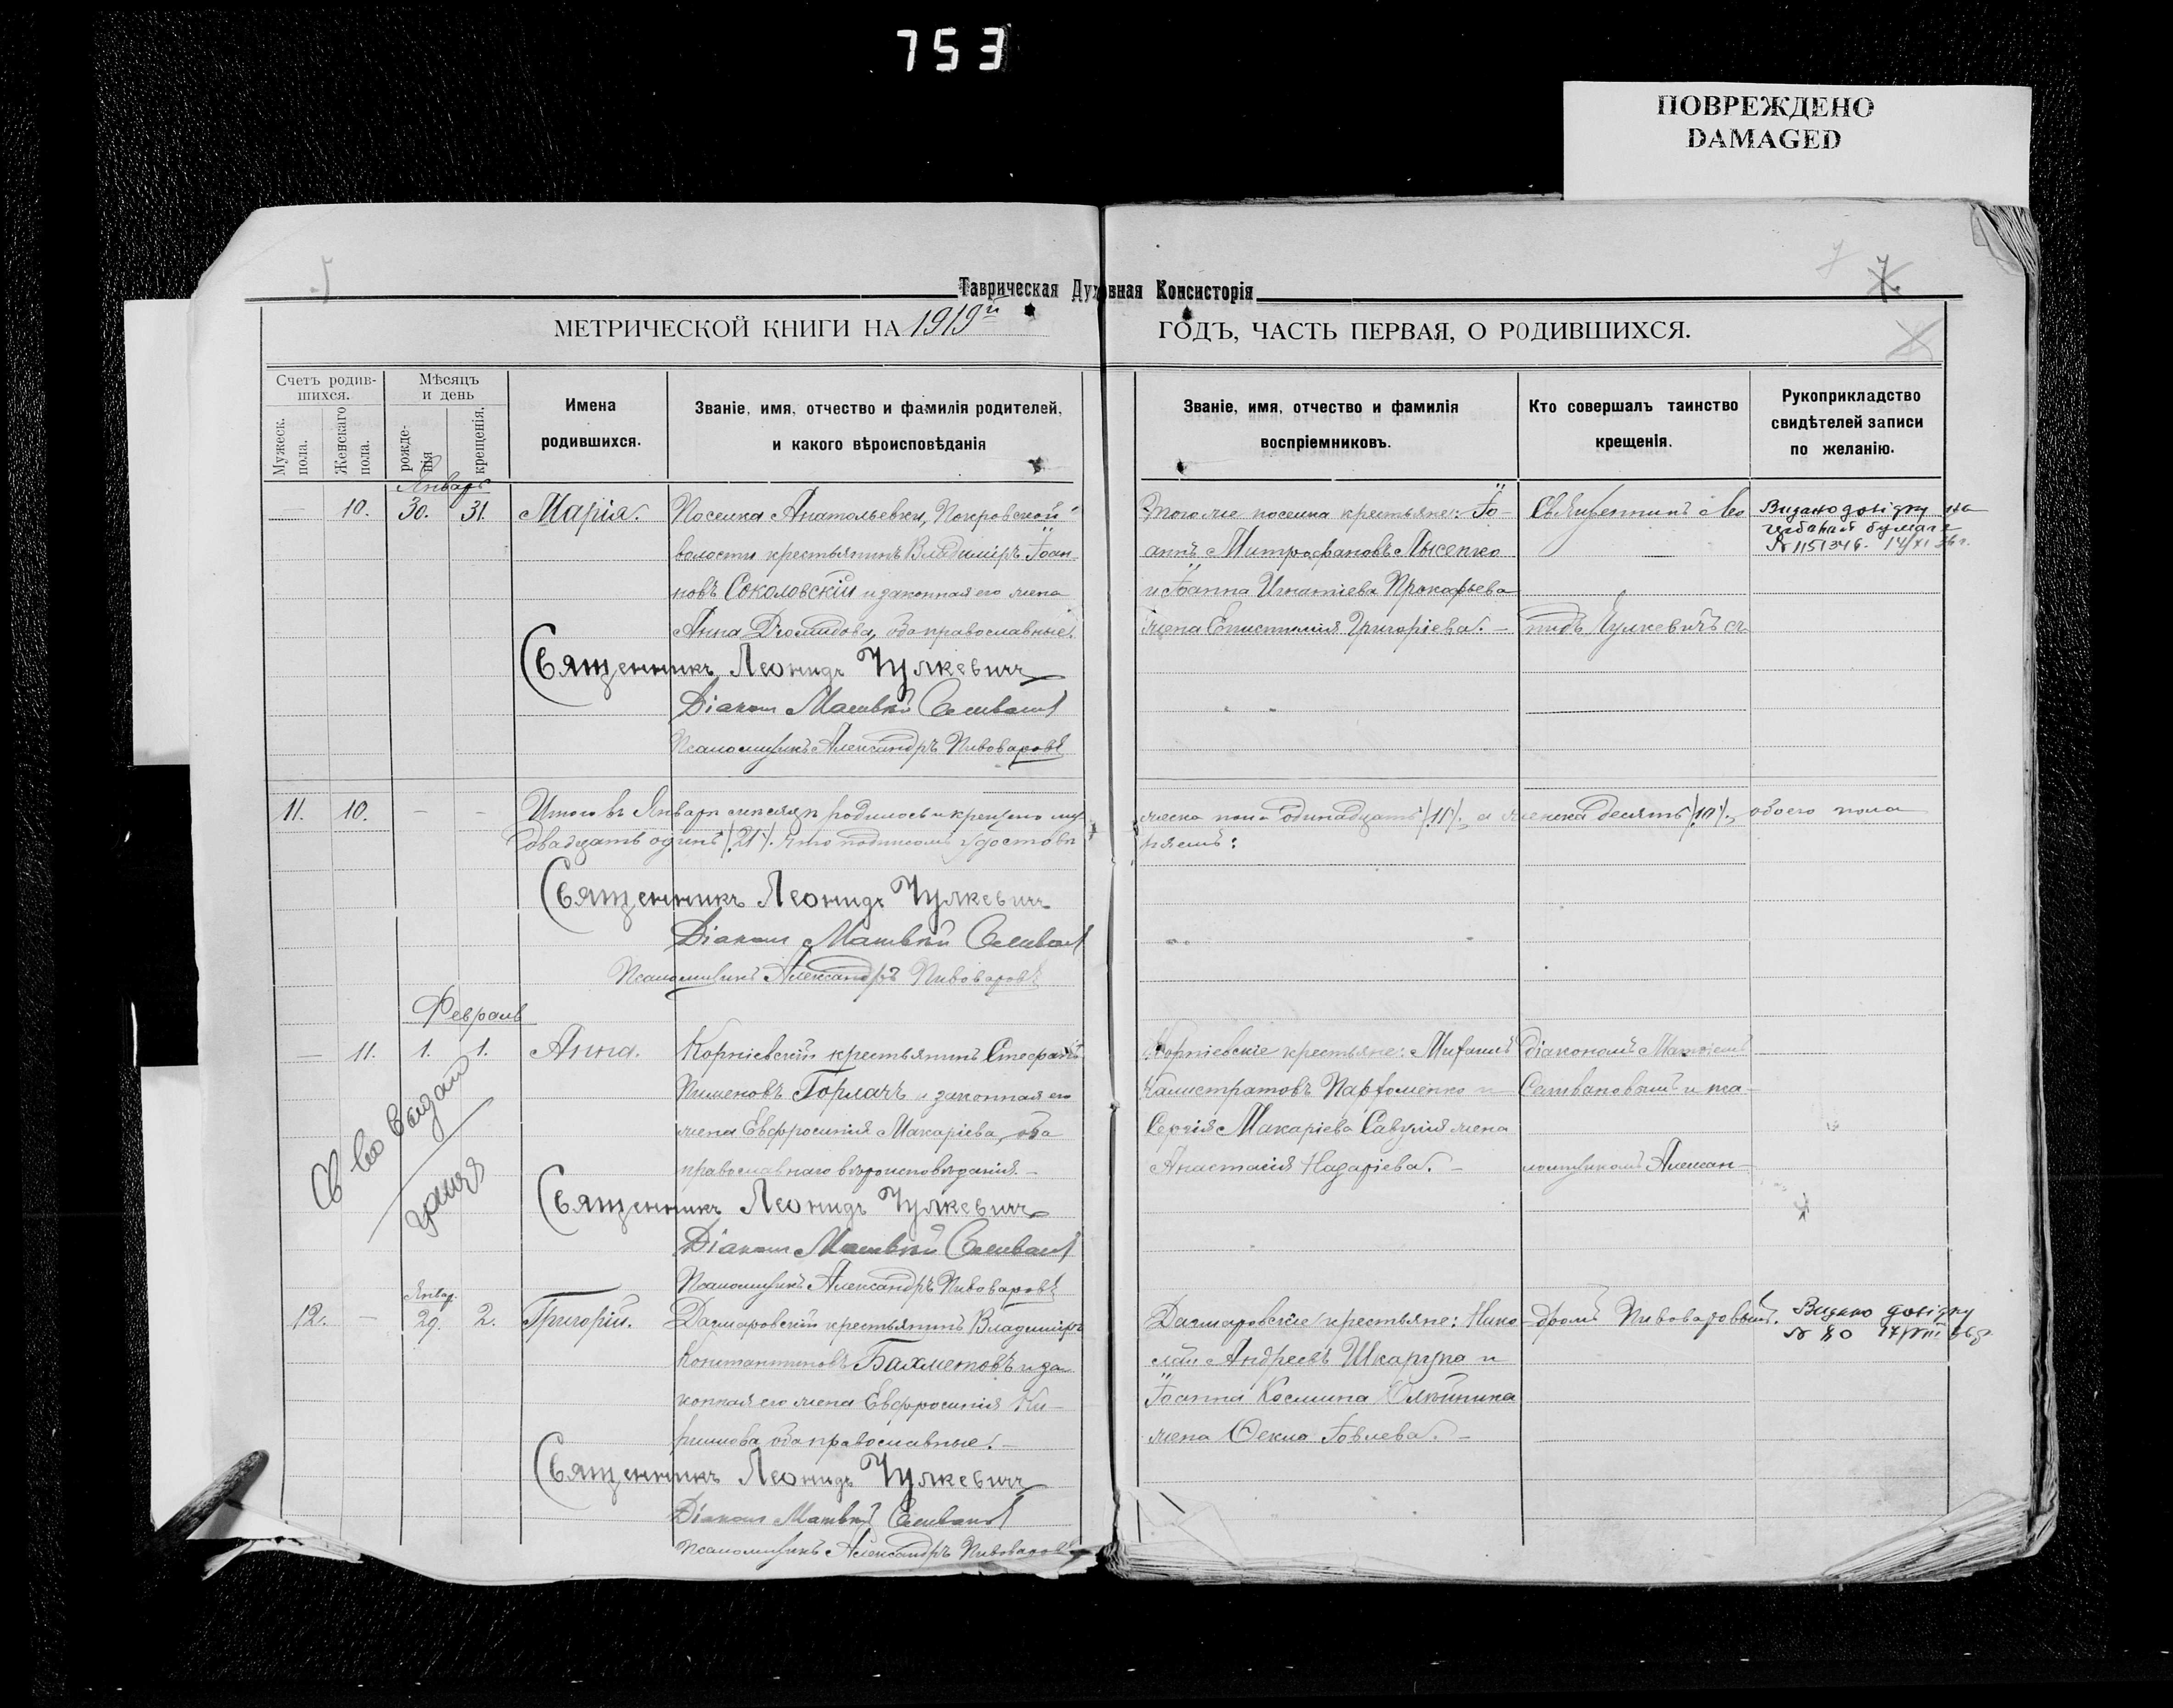 753
ПОВРЕЖДЕНО
DAMAGED
Таврическая Духовная Консисторія
МЕТРИЧЕСКОЙ КНИГИ НА 1919й ГОДЪ, ЧАСТЬ ПЕРВАЯ, О РОДИВШИХСЯ.
Счетъ родив-
шихся.
Мужеск.
пола.
Женскаго
пола.
Мѣсяцъ
и день
рожде-
нія
крещенія.
Имена
родившихся.
Званіе, имя, отчество и фамилія родителей,
и какого вѣроисповѣданія
Званіе, имя, отчество и фамилія
воспріемниковъ.
Кто совершалъ таинство
крещенія.
Рукоприкладство
свидѣтелей записи
по желанію.
Январь
10. 30. 31. Марія.
Поселка Анатольевки, Покровской
волости крестьянинъ Владиміръ Іоан-
новъ Соколовскій и законная его жена
Анна Діомидова, оба православные.
Священникъ Леонидъ Чулкевичъ
Діаконъ Матвѣй Селивановъ
Псаломщикъ Александръ Пивоваровъ
Того же поселка крестьяне: Іо-
аннъ Митрофановъ Лысенко
и Іоанна Игнатіева Прокофьева
жена Епистимія Григоріева.
Священникъ Лео
нидъ Чулкевичъ съ
Видано довідку на
гербовой бумаге
№ 1151346. 14/XI 36 г.
11. 10. Итого въ Январѣ мѣсяцѣ родилось и крещено муж
жеска пола одинадцать /11/, а женска десять /10/, обоего пола
двадцать одинъ /21/. Что подписомъ удостовѣ
ряемъ:
Священникъ Леонидъ Чулкевичъ
Діаконъ Матвѣй Селивановъ
Псаломщикъ Александръ Пивоваровъ
Февраль
11. 1. 1. Анна.
Корніевскій крестьянинъ Стефанъ
Пименовъ Горлачъ и законная его
жена Евфросинія Макаріева, оба
православнаго вѣроисповѣданія.
Священникъ Леонидъ Чулкевичъ
Діаконъ Матвѣй Селивановъ
Псаломщикъ Александръ Пивоваровъ
Корніевскіе крестьяне: Михаилъ
Калистратовъ Парфоменко и
Сергія Макаріева Савулія жена
Анастасія Назаріева.
діакономъ Матвіемъ
Селивановымъ и пса-
ломщикомъ Алексан-
Св во выдан
Январ.
12. 29. 2. Григорій.
Дагмаровскій крестьянинъ Владиміръ
Константиновъ Бахметовъ и за-
конная его жена Евфросинія Ки-
риллова, оба православные.
Священникъ Леонидъ Чулкевичъ
Діаконъ Матвѣй Селивановъ
Псаломщикъ Александръ Пивоваровъ
Дагмаровскіе крестьяне: Нико-
лай Андреевъ Шкарупа и
Іоанна Космина Олейника
жена Ѳекла Іовлева.
дромъ Пивоваровымъ.
Видано довідку
№ 80 17/VIII 36 р.